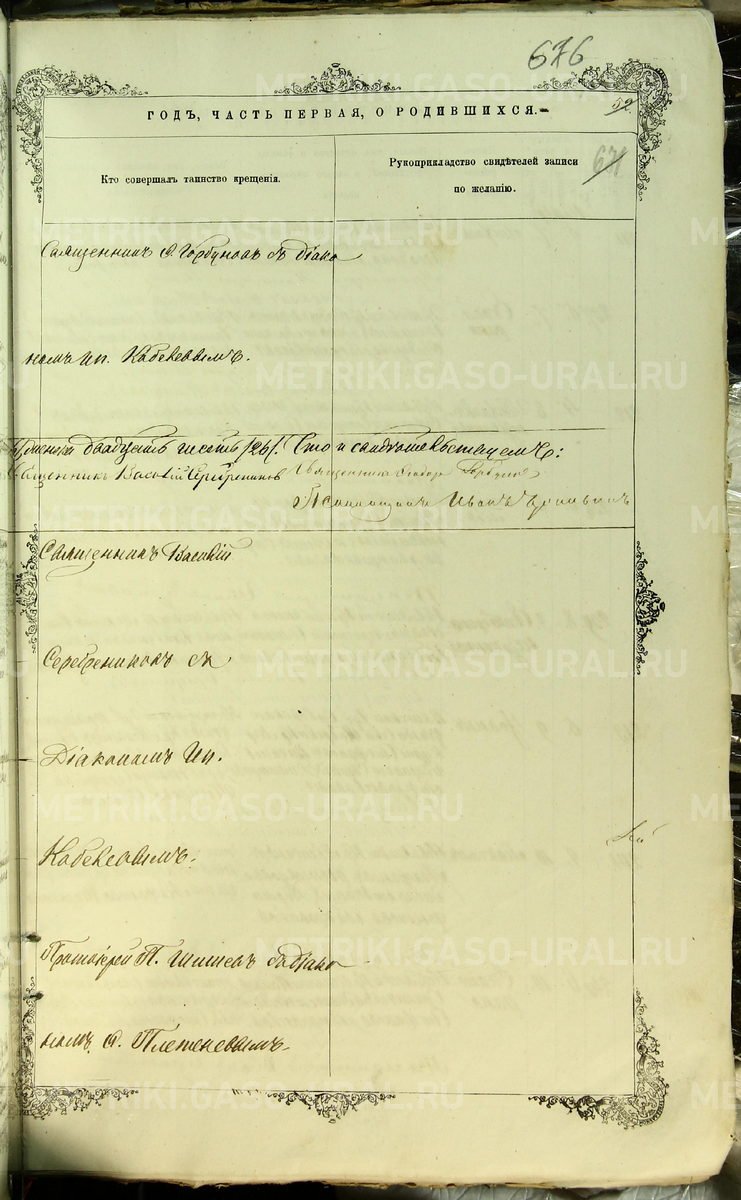 676
52
ГОДЪ, ЧАСТЬ ПЕРВАЯ, О РОДИВШИХСЯ.
671
Кто совершалъ таинство крещенія.
Рукоприкладство свидѣтелей записи
по желанію.
Священникъ Ѳ. Горбуновъ съ діако
номъ Ип. Кабековымъ.
двадцать шесть /26/. Что и свидѣтельствуемъ:
Священникъ Василій Серебрениковъ
Священникъ Горбуновъ
Псаломщикъ Иванъ
Священникъ Василій
Серебрениковъ съ
Діакономъ Ип.
Кабековымъ.
Протоіерей П. Шишевъ съ діако
номъ Ѳ. Плетеневымъ.
METRIKI.GASO-URAL.RU